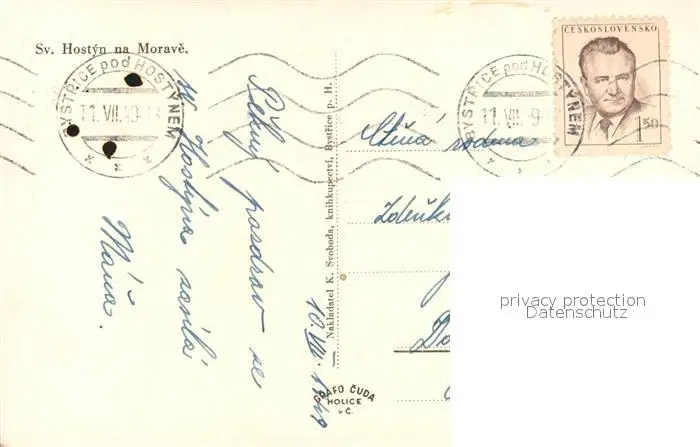 Sv. Hostýn na Moravě.
BYSTŘICE pod HOSTÝNEM
11.VII.49-18
Pěkný pozdrav se
sv. Hostýna zasílá
Máňa.
10.VII.1949
Nakladatel K. Svoboda, knihkupectví, Bystřice p. H.
GRAFO ČUDA
HOLICE
v Č.
ČESKOSLOVENSKO
1.50
BYSTŘICE pod HOSTÝNEM
11.VII.49
Ctěná rodina
Zdeňk
privacy protection
Datenschutz